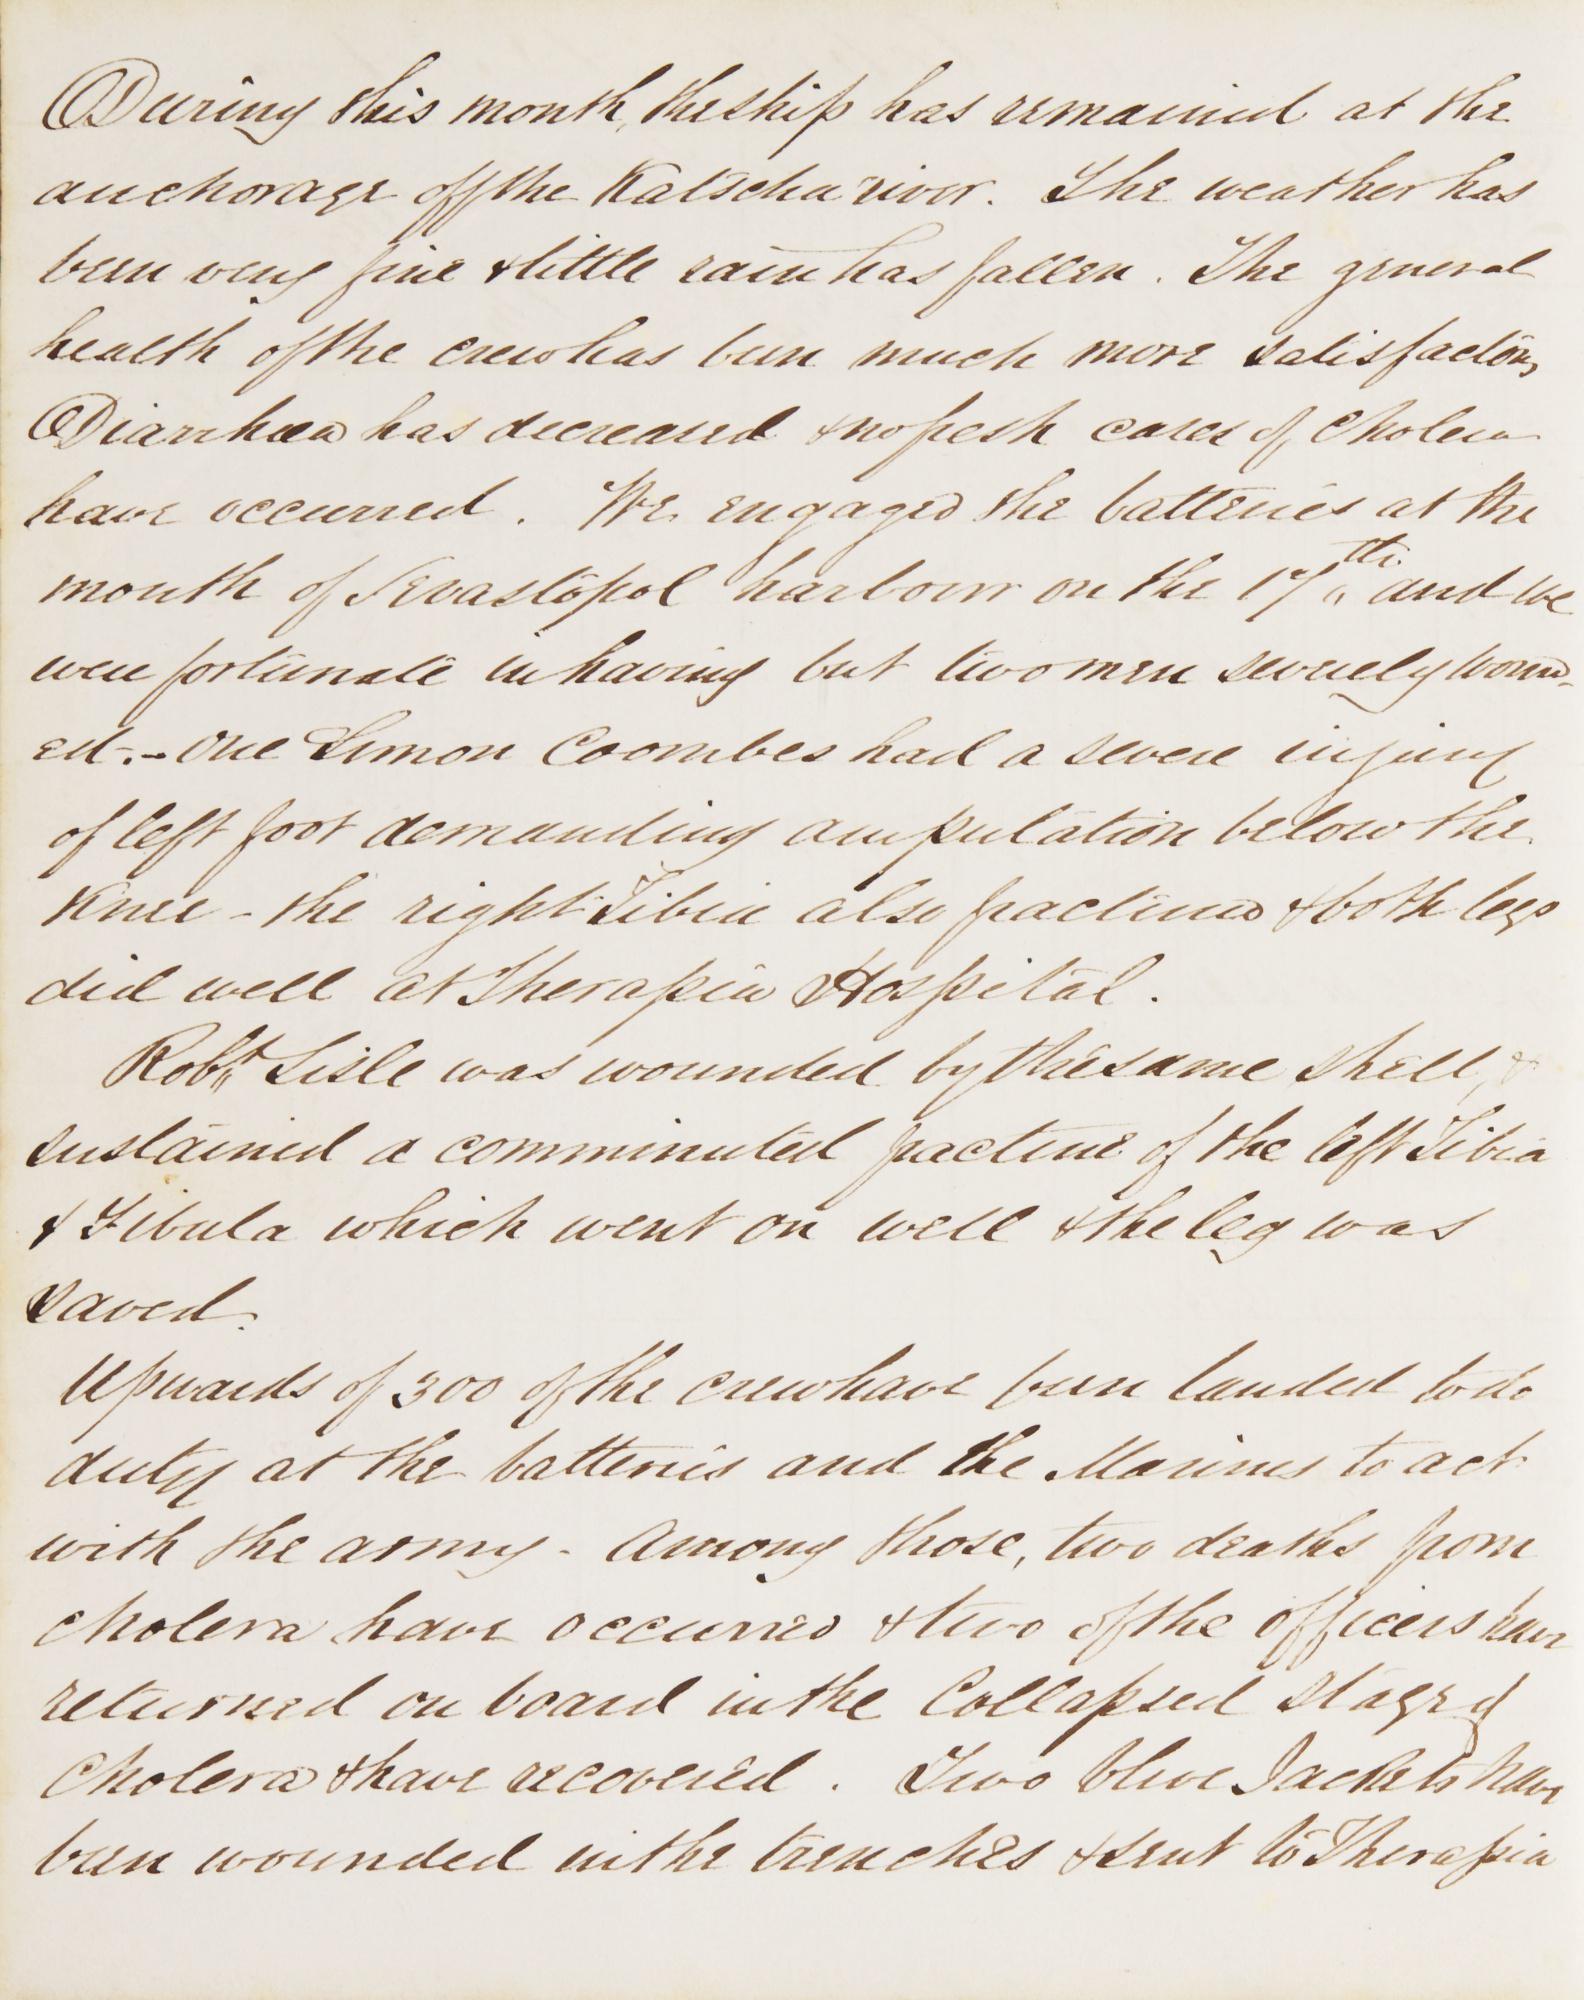 During this month, the ship has remained at the
anchorage off the Katscha river. The weather has
been very fine & little rain has fallen. The general
health of the crew has been much more satisfactory
Diarrhœa has decreased & no fresh cases of Cholera
have occurred. We engaged the batteries at the
mouth of Sevastopol harbour on the 17th and we
were fortunate in having but two men severely wound-
ed.- One Simon Coombes had a severe injury
of left foot demanding amputation below the
Knee - the right Tibia also fractured & both legs
did well at Therapia Hospital.
Robt Lisle was wounded by the same shell, &
sustained a comminuted fracture of the left Tibia
& Fibula which went on well & the leg was
saved.
Upwards of 300 of the crew have been landed to do
duty at the batteries and the Marines to act
with the army - Among those, two deaths from
cholera have occurred & two of the officers have
returned on board in the Collapsed stage of
Cholera & have recovered. Two blue Jackets have
been wounded in the trenches & sent to Therapia